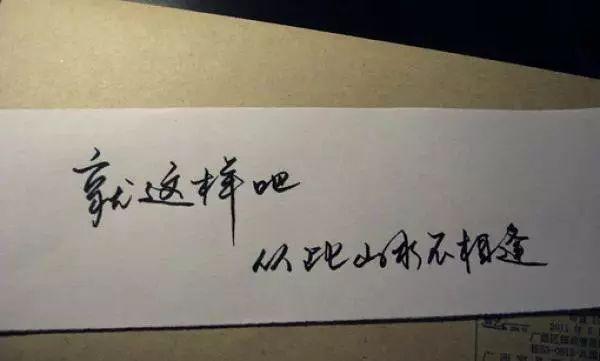 就这样吧
从此山水不相逢